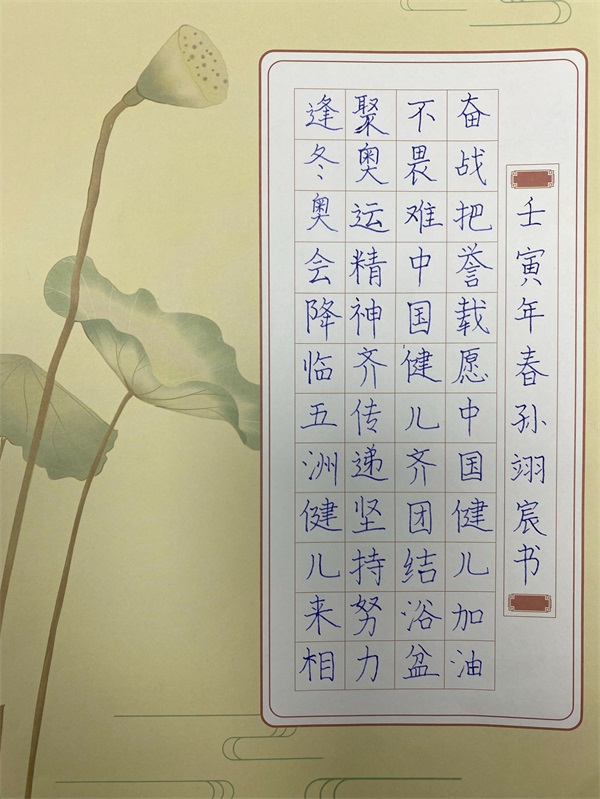 逢冬奥会降临五洲健儿来相
聚奥运精神齐传递坚持努力
不畏难中国健儿齐团结浴盆
奋战把誉载愿中国健儿加油
壬寅年春孙翊宸书